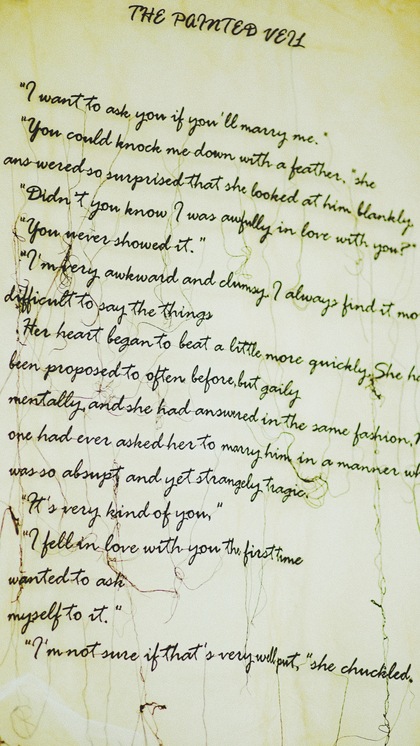 THE PAINTED VEIL
"I want to ask you if you'll marry me."
"You could knock me down with a feather, "she
answered so surprised that she looked at him blankly.
"Didn't you know I was awfully in love with you?"
"You never showed it."
"I'm very awkward and clumsy. I always find it mo
difficult to say the things
Her heart began to beat a little more quickly. She ha
been proposed to often before, but gaily
mentally, and she had answered in the same fashion. N
one had ever asked her to marry him in a manner wh
was so abrupt and yet strangely tragic.
"It's very kind of you,"
"I fell in love with you the first time
wanted to ask
myself to it."
"I'm not sure if that's very well put, "she chuckled.